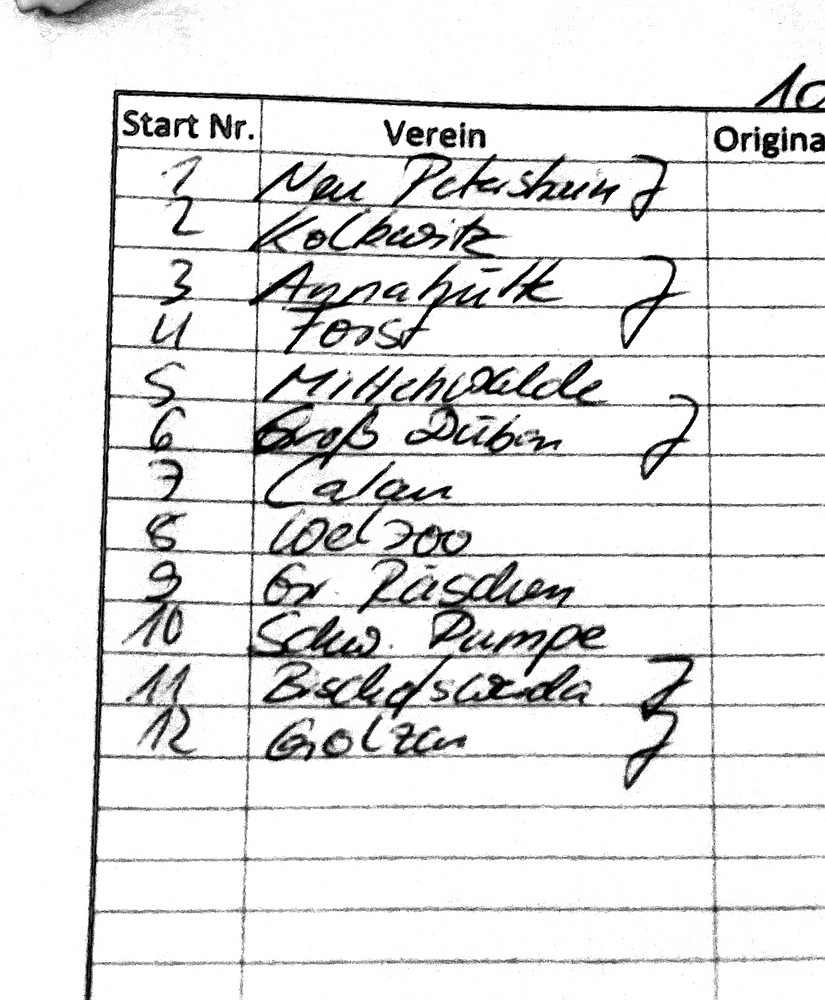 10
Start Nr. Verein Origina
1 Neu Petershain J
2 Kolkwitz
3 Annahütte J
4 Forst
5 Mittenwalde
6 Groß Düben J
7 Calau
8 Welzow
9 Gr. Räschen
10 Schw. Pumpe
11 Bischofswerda J
12 Golzau J